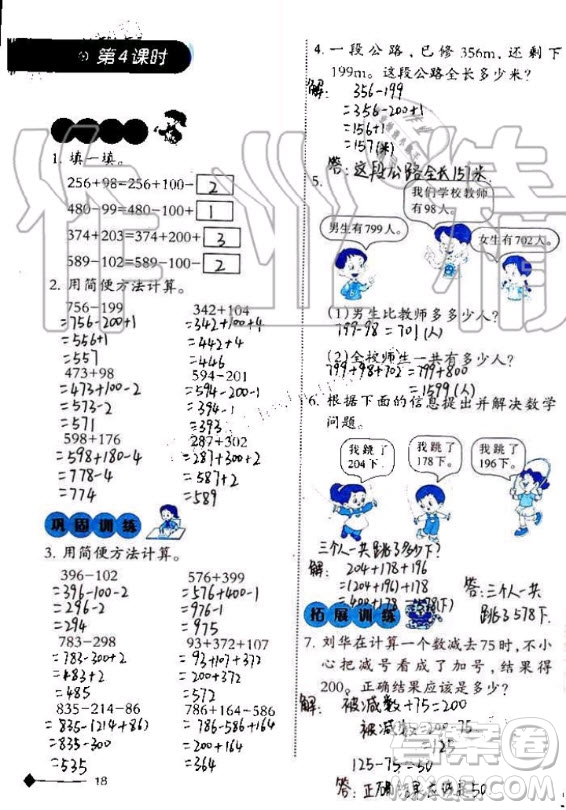 第4课时
1. 填一填。
256+98=256+100-2
480-99=480-100+1
374+203=374+200+3
589-102=589-100-2
2. 用简便方法计算。
756-199
=756-200+1
=556+1
=557
342+104
=342+100+4
=442+4
=446
473+98
=473+100-2
=573-2
=571
594-201
=594-200-1
=394-1
=393
598+176
=598+180-4
=778-4
=774
287+302
=287+300+2
=587+2
=589
巩固训练
3. 用简便方法计算。
396-102
=396-100-2
=296-2
=294
576+399
=576+400-1
=976-1
=975
783-298
=783-300+2
=483+2
=485
93+372+107
=93+107+372
=200+372
=572
835-214-86
=835-(214+86)
=835-300
=535
786+164-586
=786-586+164
=200+164
=364
18
4. 一段公路,已修356m,还剩下
199m。这段公路全长多少米?
解: 356-199
=356-200+1
=156+1
=157(米)
答:这段公路全长151米
5.
我们学校教师
有98人。
男生有799人。
女生有702人。
(1)男生比教师多多少人?
799-98=701(人)
(2)全校师生一共有多少人?
799+98+702=799+800
=1599(人)
6. 根据下面的信息提出并解决数学
问题。
我跳了
204下。
我跳了
178下。
我跳了
196下。
三个人一共跳了多少下?
解: 204+178+196
=(204+196)+178
=400+178
=578(下)
答:三个人一共
跳了578下.
拓展训练
7. 刘华在计算一个数减去75时,不小
心把减号看成了加号,结果得
200。正确结果应该是多少?
解: 被减数+75=200
被减数=200-75
=125
125-75=50
答:正确结果应该是50